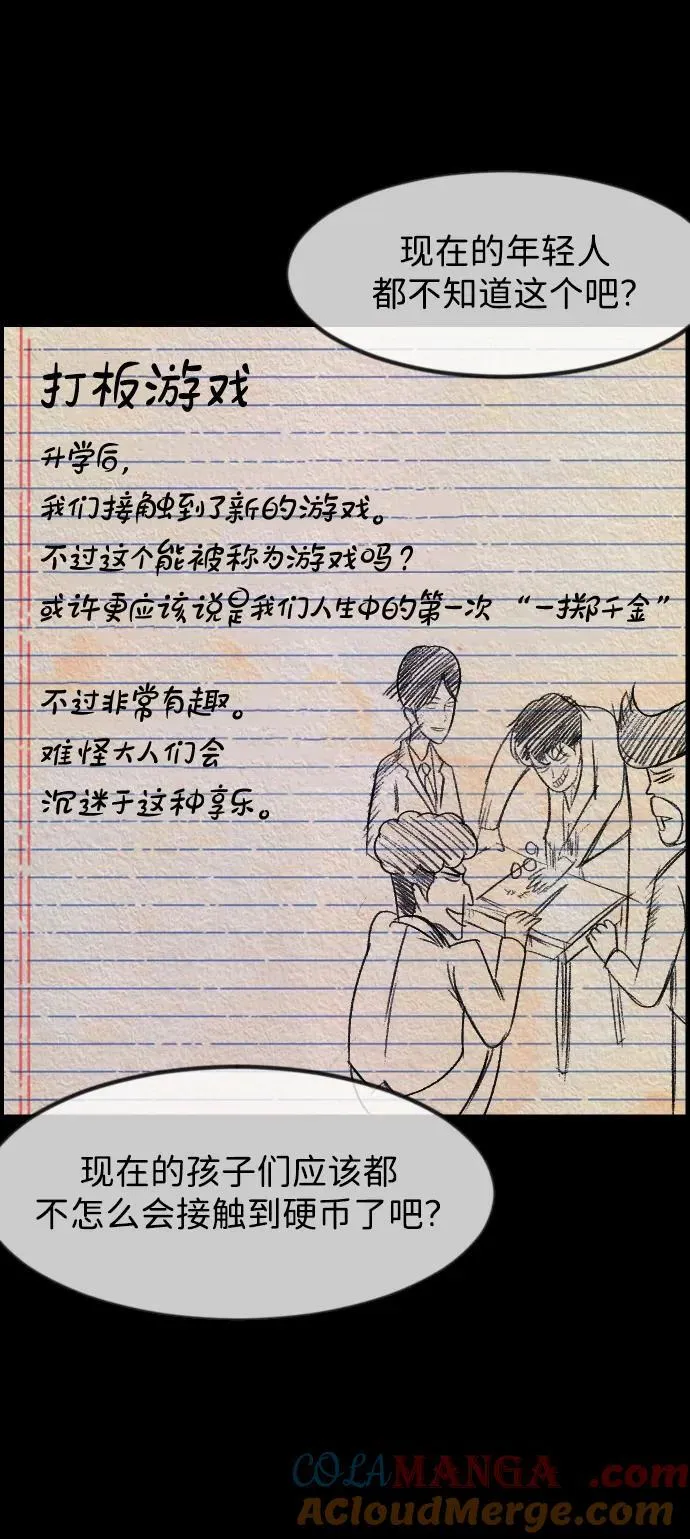 现在的年轻人
都不知道这个吧?
打板游戏
升学后,
我们接触到了新的游戏。
不过这个能被称为游戏吗?
或许更应该说是我们人生中的第一次 “一掷千金”
不过非常有趣。
难怪大人们会
沉迷于这种享乐。
现在的孩子们应该都
不怎么会接触到硬币了吧?
COLAMANGA.com
ACloudMerge.com